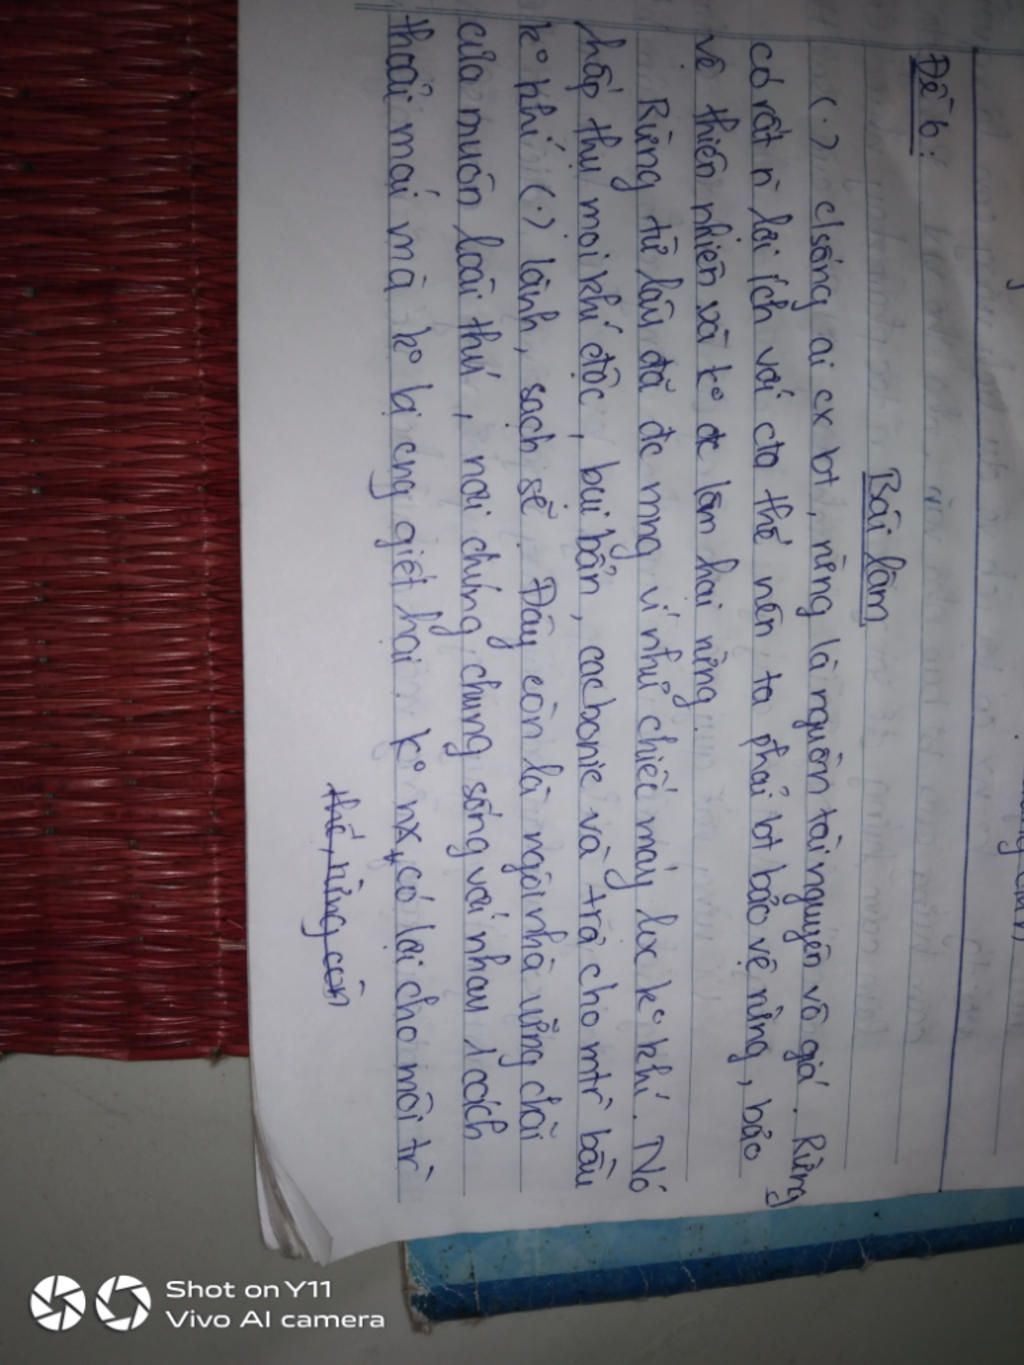 Đề 6:
Bài làm
(.) c/sống ai cx bt, rừng là nguồn tài nguyên vô giá. Rừng
có rất n` lợi ích với cta thế nên ta phải bt bảo vệ rừng, bảo
vệ thiên nhiên và kº đc lâm hại rừng
Rừng từ lâu đã đc mng ví như chiếc máy lọc kº khí. Nó
hấp thụ mọi khí độc, bụi bẩn, cacbonic và trả cho mtr` bầu
kº khí (.) lành, sạch sẽ. Đây còn là ngôi nhà vững chãi
của muôn loài thú, nơi chúng chung sống với nhau 1 cách
thoải mái mà kº bị cng giết hại. kº nx, có lợi cho môi tr`
thế, rừng còn
Shot on Y11
Vivo AI camera